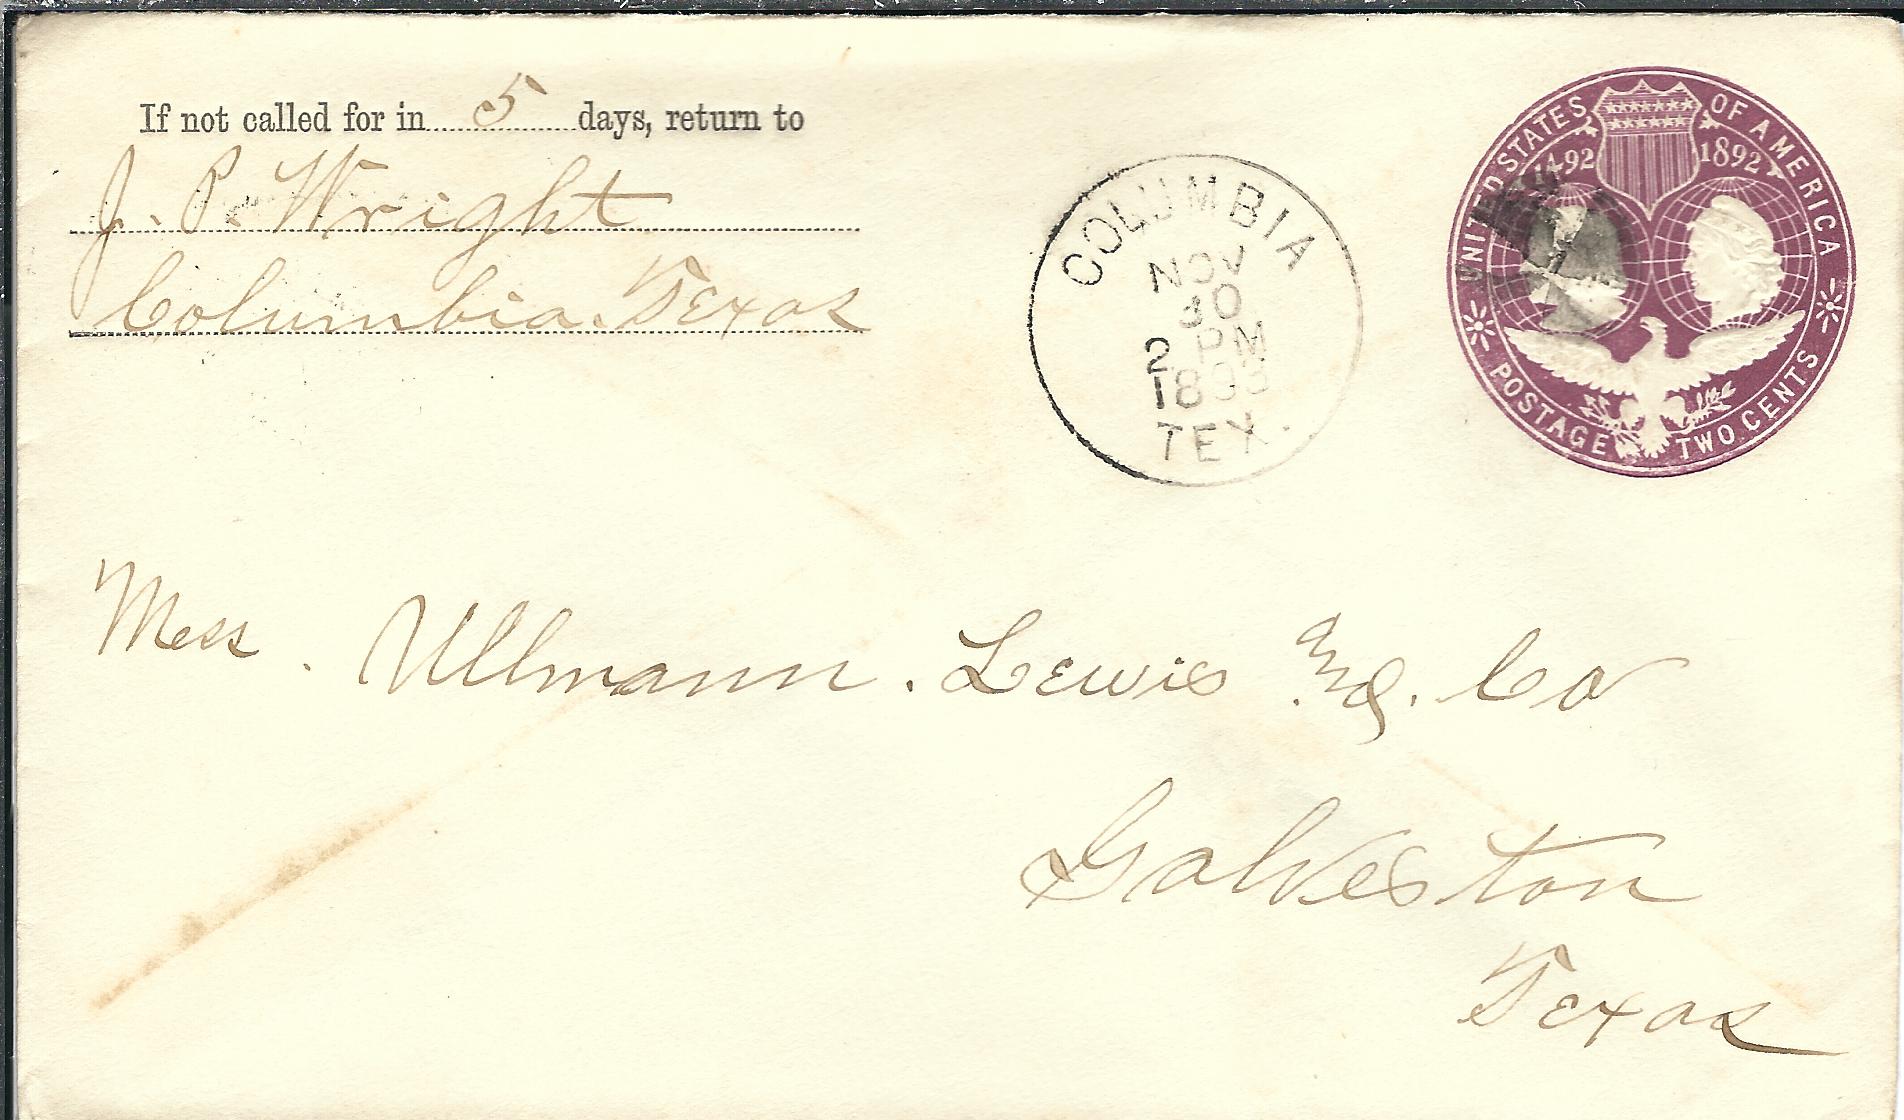 If not called for in 5 days, return to
J. P. Wright
Columbia. Texas
COLUMBIA
NOV
30
2 PM
1893
TEX.
UNITED STATES OF AMERICA
1492 1892
POSTAGE TWO CENTS
Mess. Ullmann. Lewis & Co
Galveston
Texas